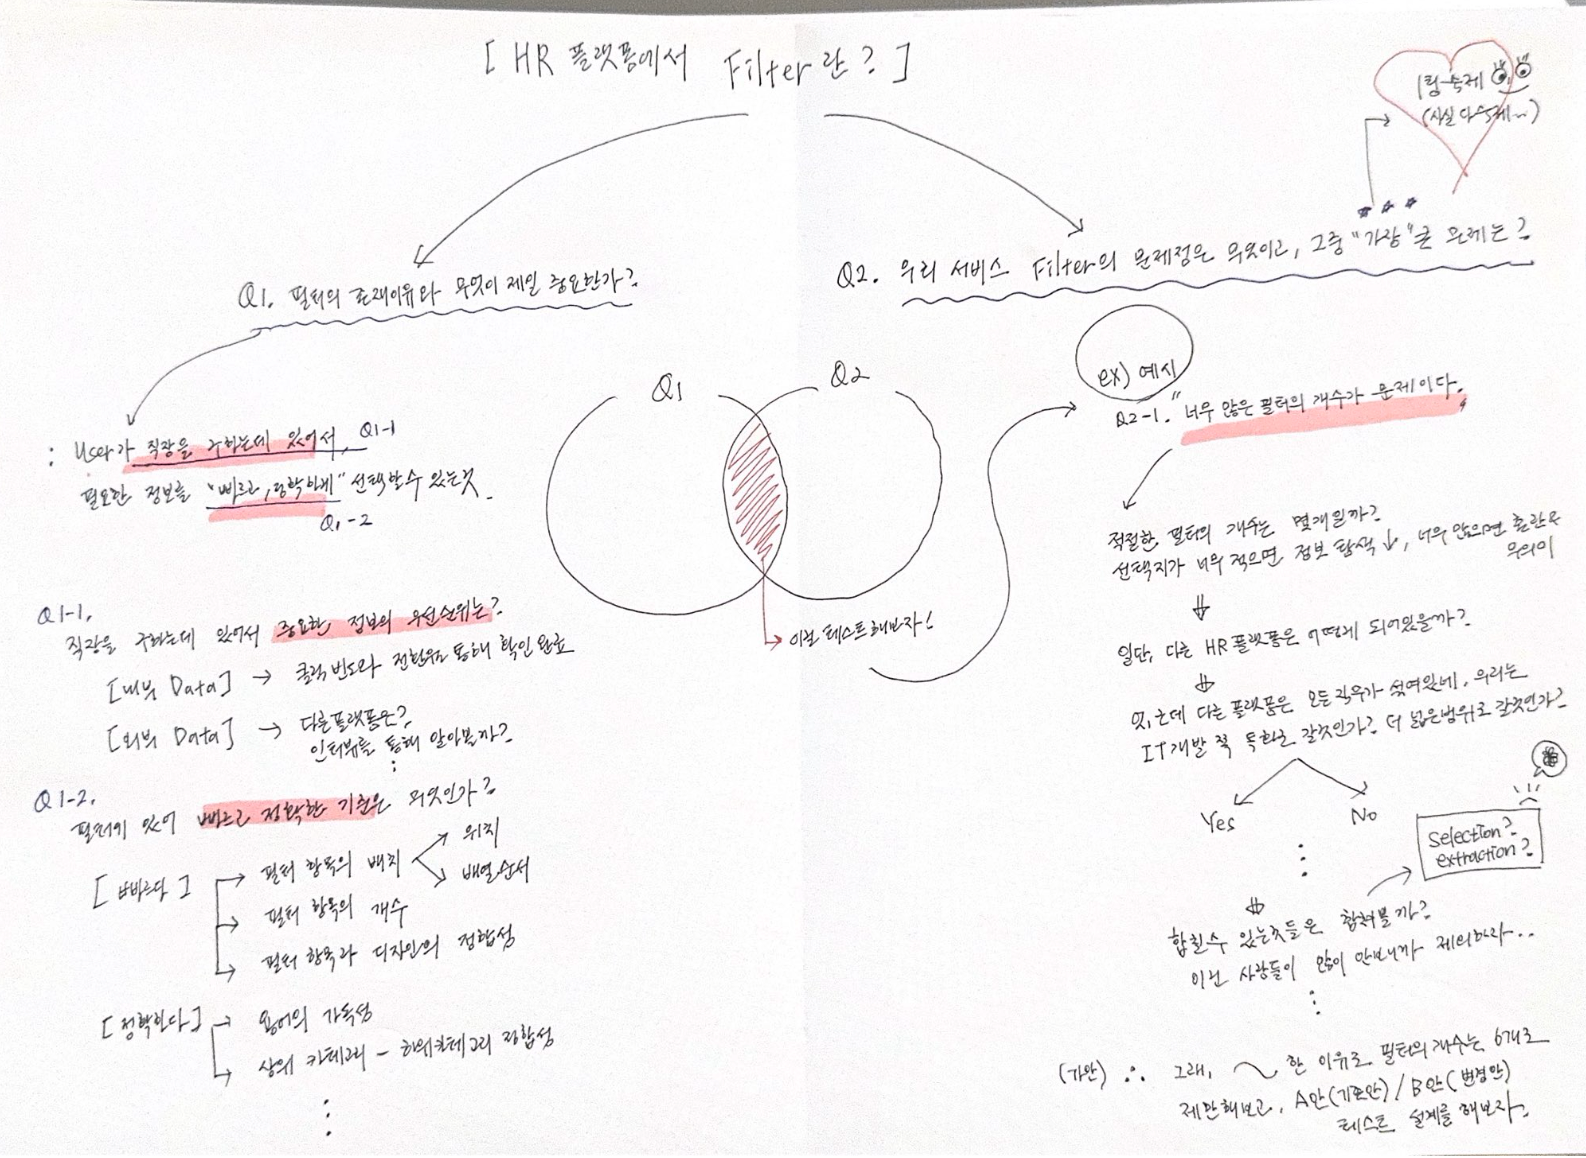 [ HR 플랫폼에서 Filter란? ]
1팀 숙제
(사실 다 숙제~)
Q1. 필터의 존재이유와 무엇이 제일 중요한가?
Q2. 우리 서비스 Filter의 문제점은 무엇이고, 그중 "가장" 큰 문제는?
: User가 직장을 구하는데 있어서, Q1-1
필요한 정보를 "빠르고, 정확하게" 선택할 수 있는것.
Q1-2
Q1
Q2
이걸 테스트해보자!
ex) 예시
Q2-1. "너무 많은 필터의 개수가 문제이다."
Q1-1.
직장을 구하는데 있어서 중요한 정보의 우선순위는?
[내부 Data] → 클릭 빈도와 전환율 통해 확인 완료
[외부 Data] → 다른플랫폼은?
인터뷰를 통해 알아볼까?
Q1-2.
필터에 있어 빠르고 정확한 기준은 무엇인가?
[빠르다] → 필터 항목의 배치
위치
배열순서
필터 항목의 개수
필터 항목과 디자인의 정합성
[정확한다] → 용어의 가독성
상위 카테고리 - 하위카테고리 정합성
적절한 필터의 개수는 몇개일까?
선택지가 너무 적으면 정보 탐색↓, 너무 많으면 혼란&
무의미
일단, 다른 HR 플랫폼은 어떻게 되어있을까?
엇, 근데 다른 플랫폼은 모든 직무가 섞여있네, 우리는
IT개발 쪽 특화로 갈것인가? 더 넓은범위로 갈것인가?
Yes
No
selection?
extraction?
합칠수 있는것들은 합쳐볼까?
이건 사람들이 많이 안보니까 제외하자..
(가안) ∴ 그래, ~한 이유로 필터의개수는 6개로
제안해보고, A안(기존안) / B안(변경안)
테스트 설계를 해보자?